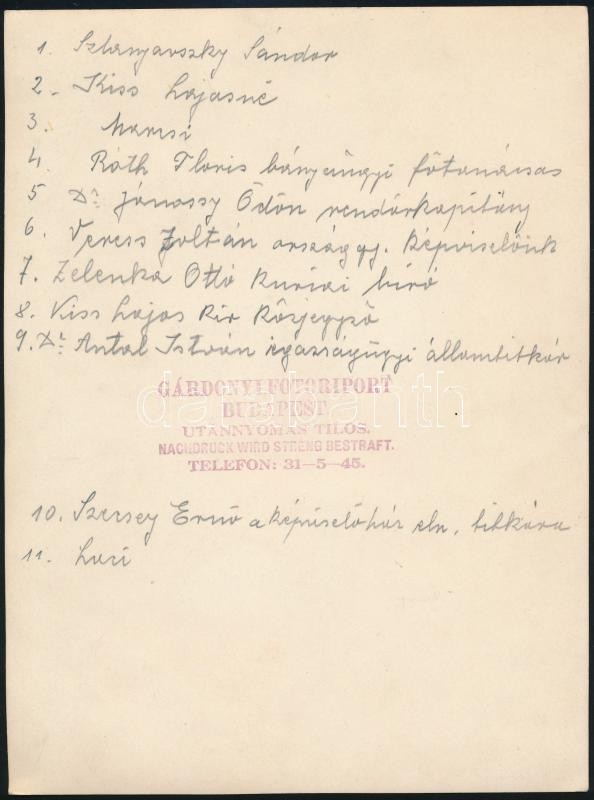 1. Sztranyavszky Sándor
2. Kiss Lajosné
3. Marcsi
4. Róth Flóris bányaügyi főtanácsos
5 Dr. Jánossy Ödön rendőrkapitány
6. Veress Zoltán országgy. képviselőnk
7. Zelenka Ottó kuriai biró
8. Kiss Lajos kir közjegyző
9. Dr. Antal István igazságügyi államtitkár
GÁRDONYI FOTORIPORT
BUDAPEST
UTÁNNYOMÁS TILOS.
NACHDRUCK WIRD STRENG BESTRAFT.
TELEFON: 31—5—45.
darabanth
10. Szercsey Ernő a képviselőház eln. titkára
11. Luci